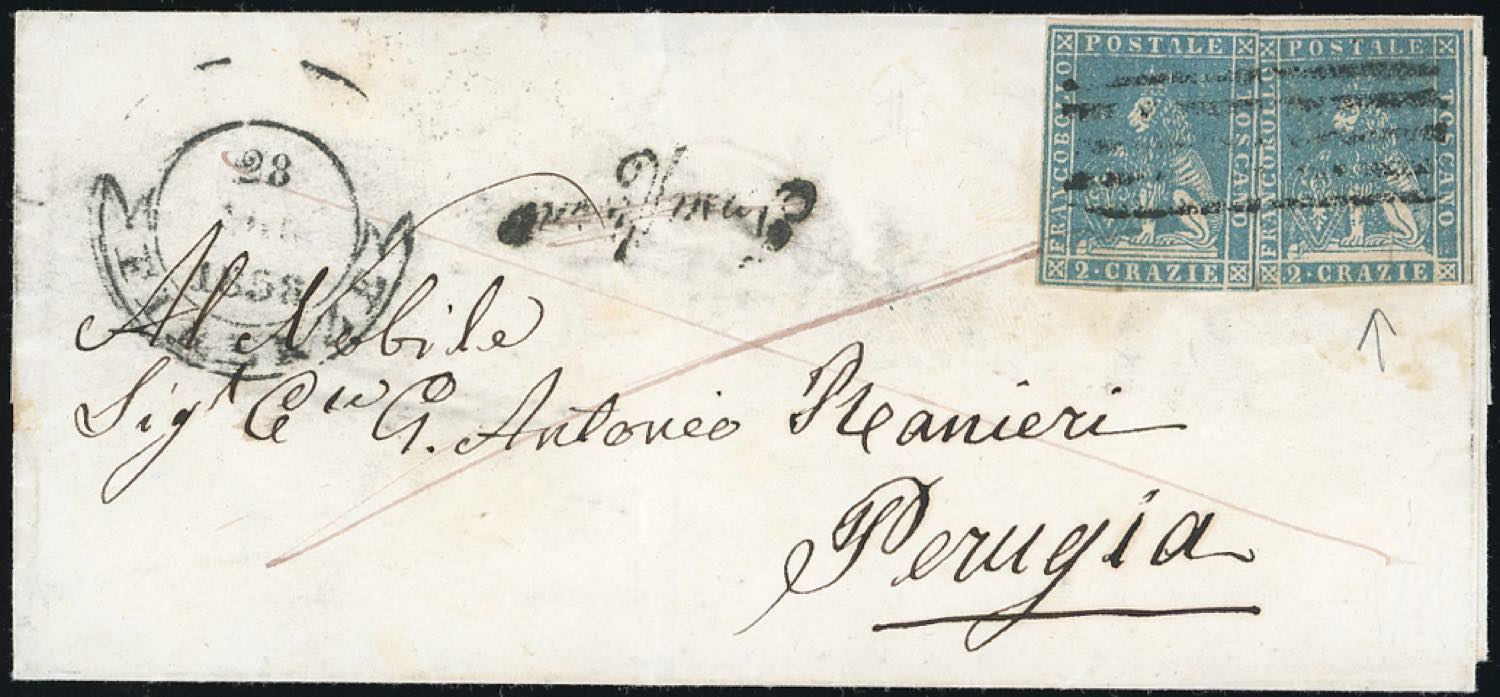 POSTALE
FRANCOBOLLO
TOSCANO
2 · CRAZIE
POSTALE
FRANCOBOLLO
TOSCANO
2 · CRAZIE
28
1858
Al Nobile
Sigr G. Antonio Ranieri
Perugia